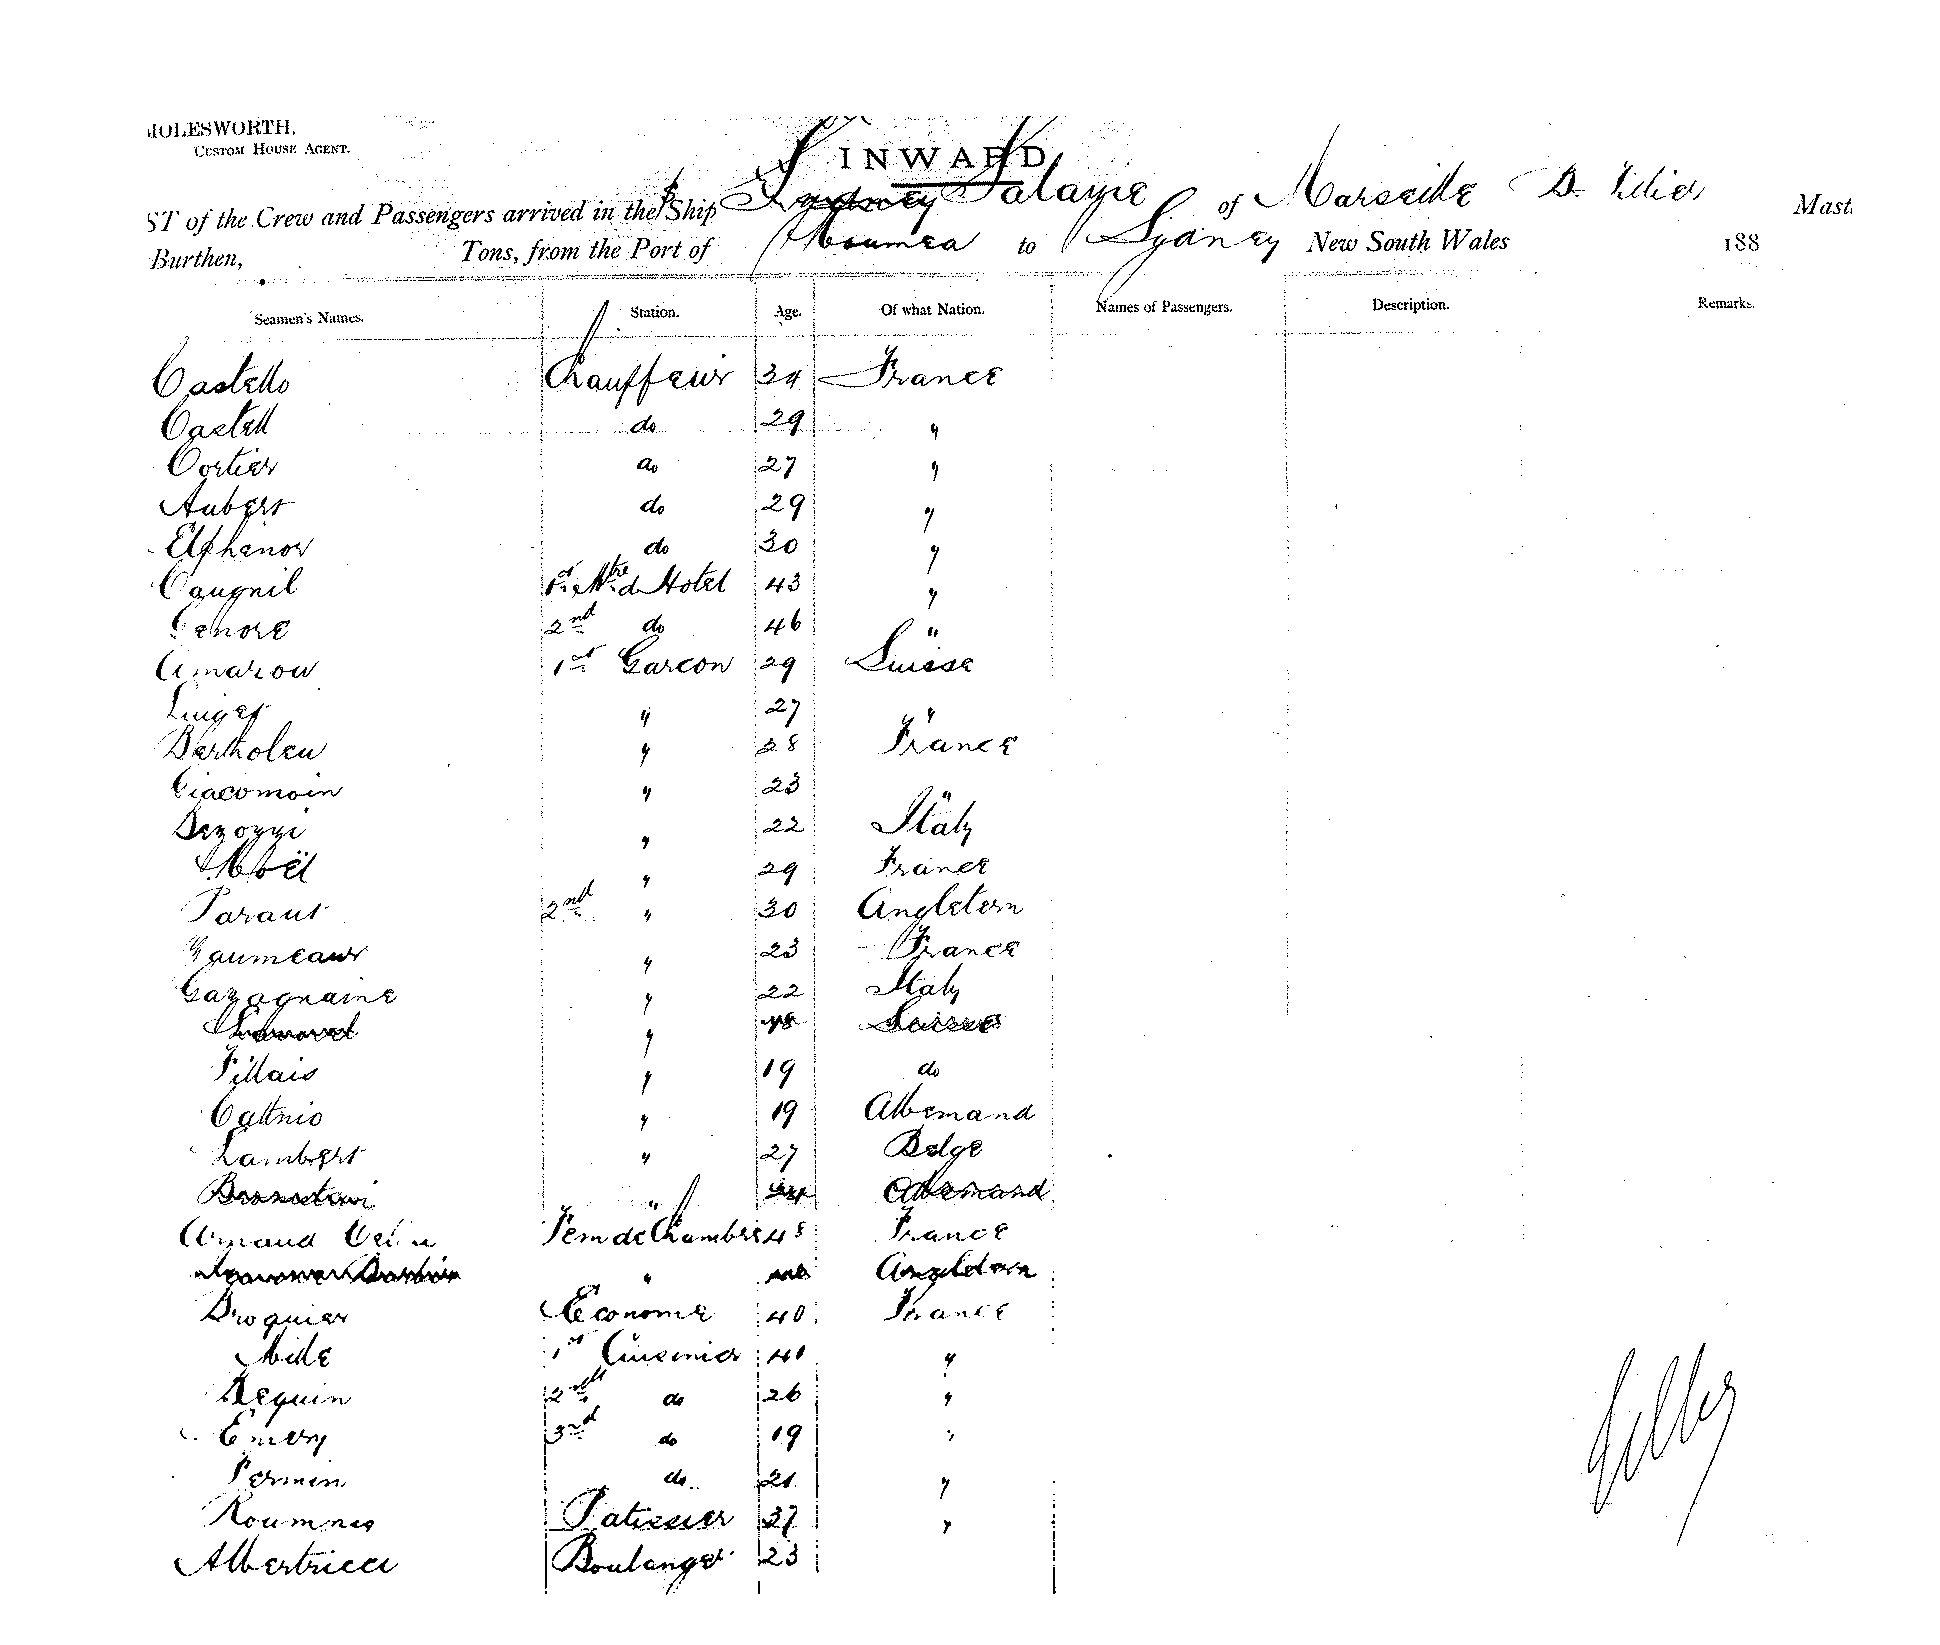 MOLESWORTH,
CUSTOM HOUSE AGENT.
INWARD
ST of the Crew and Passengers arrived in the Ship Salazie of Marseille Mast
Burthen, Tons, from the Port of Noumea to Sydney New South Wales 188
Seamen's Names. Station. Age. Of what Nation. Names of Passengers. Description. Remarks.
Castello Chauffeur 34 France
Castell do 29 "
Cortier do 27 "
Aubert do 29 "
Elphenor do 30 "
Caugnil 1st Mtre d Hotel 43 "
Genore 2nd do 46 "
Amarou 1st Garcon 29 Suisse
Linget " 27 "
Bertholeu " 28 France
Giacomoin " 23 "
Bezozzi " 22 Italy
Noël " 29 France
Paraut 2nd " 30 Angleterr
Gaumeaux " 23 France
Gazagnaire " 22 Italy
" 18 Suisse
Fillais " 19 do
Cattnio " 19 Allemand
Lambert " 27 Belge
" Allemand
Arnaud Fem de Chambre 48 France
" Angleterr
Droguier Econome 40 France
Mille 1st Cuisinier 40 "
Requin 2nd do 26 "
Emery 3rd do 19 "
Permin do 21 "
Roumnes Patissier 37 "
Albertricci Boulanger 23